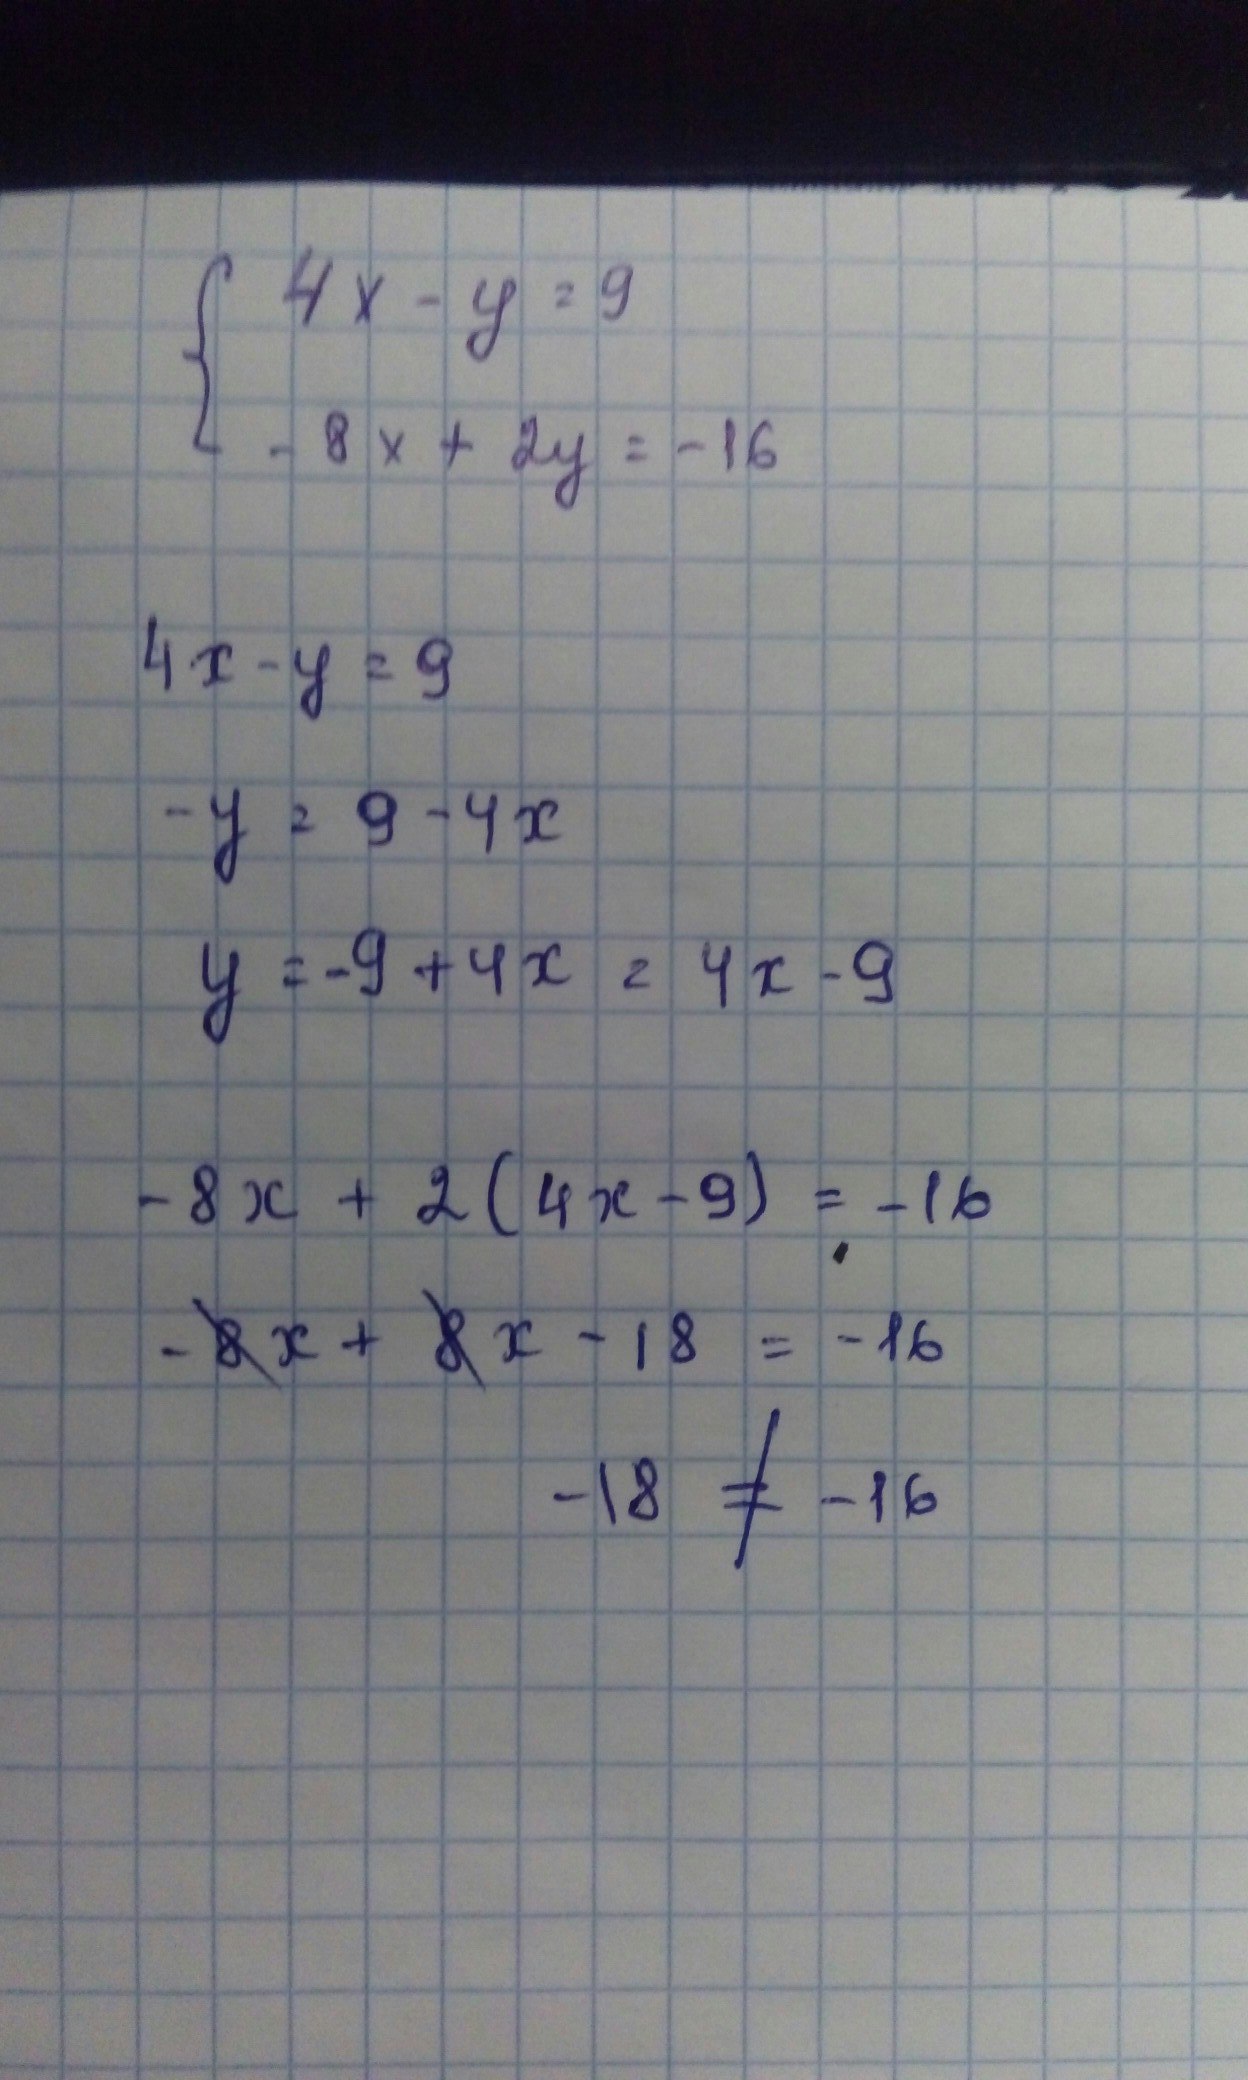 4x - y = 9
- 8x + 2y = -16
4x - y = 9
-y = 9 - 4x
y = -9 + 4x = 4x - 9
-8x + 2(4x - 9) = -16
-8x + 8x - 18 = -16
-18 ≠ -16